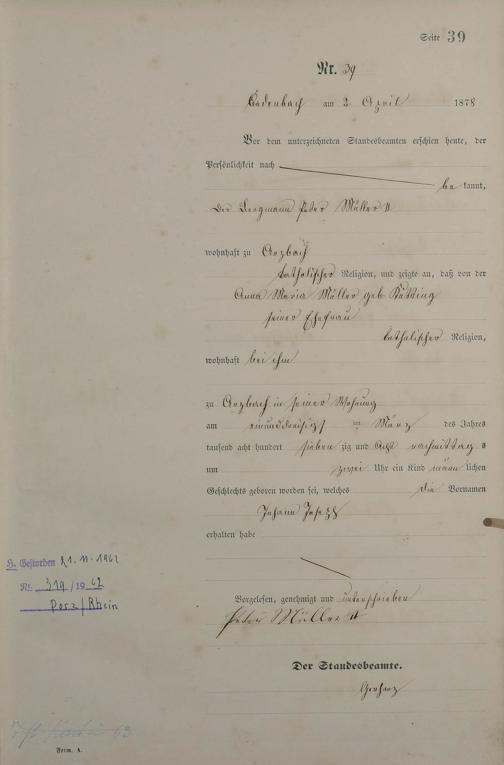 Seite 39
Nr. 39
am 2 April 1878
Vor dem unterzeichneten Standesbeamten erschien heute, der
Persönlichkeit nach
be kannt,
der Bergmann Peter Müller II
wohnhaft zu Arzbach
katholischer Religion, und zeigte an, daß von der
Anna Maria Müller geb
seiner Ehefrau
katholischer Religion,
wohnhaft bei ihm
zu Arzbach in seiner Wohnung
am einunddreißigsten März des Jahres
tausend acht hundert sieben zig und Acht nachmittag s
um zwei Uhr ein Kind männ lichen
Geschlechts geboren worden sei, welches die Vornamen
Johann Joseph
erhalten habe
Vorgelesen, genehmigt und unterschrieben
Peter Müller II
Der Standesbeamte.
H. Gestorben 21.11.1962
Nr. 319/1962
Porz/Rhein
Form. A.